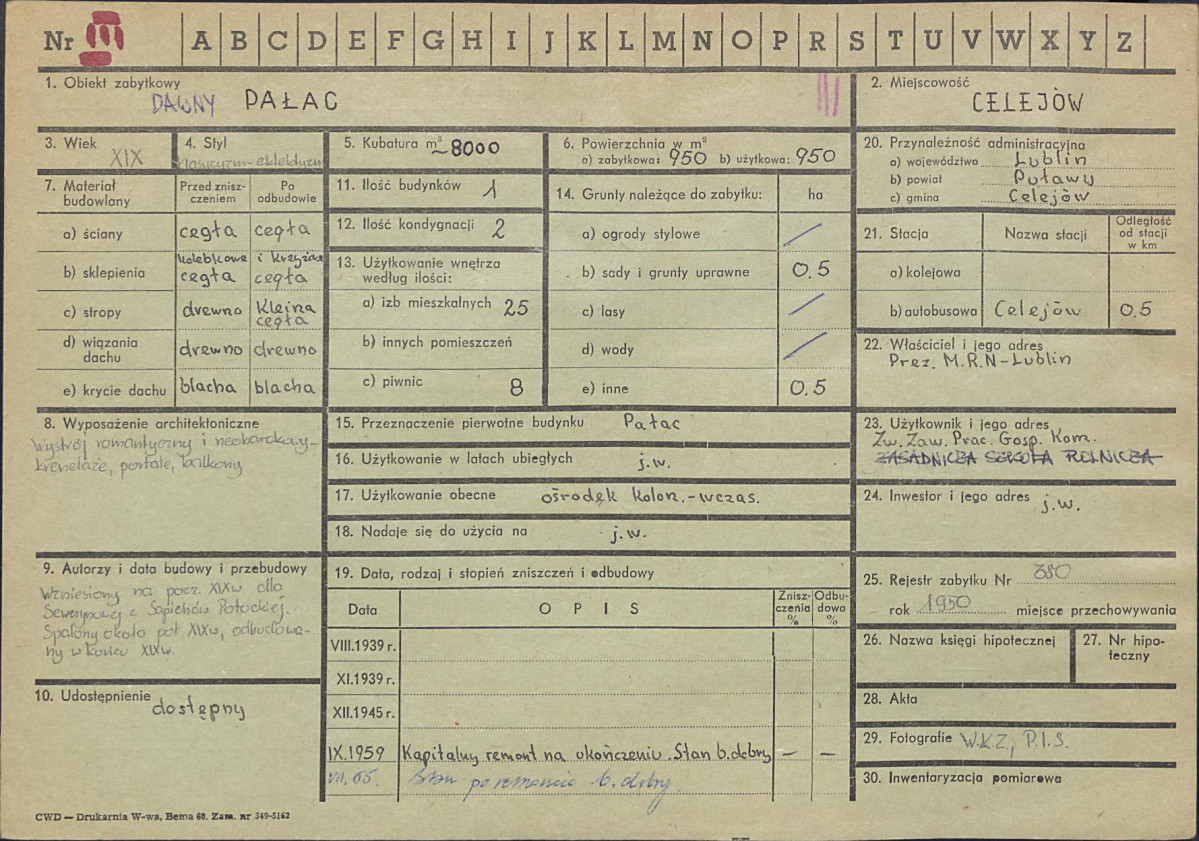 Nr III A B C D E F G H I J K L M N O P R S T U V W X Y Z
1. Obiekt zabytkowy
DAWNY PAŁAC
III
2. Miejscowość
CELEJÓW
3. Wiek
XIX
4. Styl
klasycyzm-eklektyzm
5. Kubatura m³ ~8000
6. Powierzchnia w m²
a) zabytkowa: 950 b) użytkowa: 950
20. Przynależność administracyjna
a) województwo Lublin
b) powiat Puławy
c) gmina Celejów
7. Materiał budowlany
Przed zniszczeniem
Po odbudowie
a) ściany cegła cegła
b) sklepienia kolebkowe i krzyżowe
cegła cegła
c) stropy drewno Kleina
cegła
d) wiązania dachu drewno drewno
e) krycie dachu blacha blacha
11. Ilość budynków 1
12. Ilość kondygnacji 2
13. Użytkowanie wnętrza
według ilości:
a) izb mieszkalnych 25
b) innych pomieszczeń
c) piwnic 8
14. Grunty należące do zabytku: ha
a) ogrody stylowe /
b) sady i grunty uprawne 0.5
c) lasy /
d) wody /
e) inne 0.5
21. Stacja Nazwa stacji Odległość
od stacji
w km
a) kolejowa
b) autobusowa Celejów 0.5
22. Właściciel i jego adres
Prez. M.R.N-Lublin
8. Wyposażenie architektoniczne
Wystrój romantyczny i neobarokowy-
krenelaże, portale, balkony
15. Przeznaczenie pierwotne budynku Pałac
16. Użytkowanie w latach ubiegłych j.w.
17. Użytkowanie obecne ośrodek kolon.-wczas.
18. Nadaje się do użycia na j.w.
23. Użytkownik i jego adres
Zw. Zaw. Prac. Gosp. Kom.
ZASADNICZA SZKOŁA ROLNICZA
24. Inwestor i jego adres j.w.
9. Autorzy i data budowy i przebudowy
Wzniesiony na pocz. XIXw dla
Sewerynowej z Sapiehów Potockiej.
Spalony około poł XIXw, odbudowa-
ny w końcu XIXw.
10. Udostępnienie
dostępny
19. Data, rodzaj i stopień zniszczeń i odbudowy
Data OPIS Zniszczenia % Odbudowa %
VIII.1939 r.
XI.1939 r.
XII.1945 r.
IX.1959 Kapitalny remont na ukończeniu. Stan b.dobry - -
VII. 65. Stan po remoncie b. dobry.
25. Rejestr zabytku Nr 380
rok 1950 miejsce przechowywania
26. Nazwa księgi hipotecznej
27. Nr hipo-
teczny
28. Akta
29. Fotografie W.K.Z, P.I.S.
30. Inwentaryzacja pomiarowa
CWD — Drukarnia W-wa, Bema 60. Zam. nr 349-5162